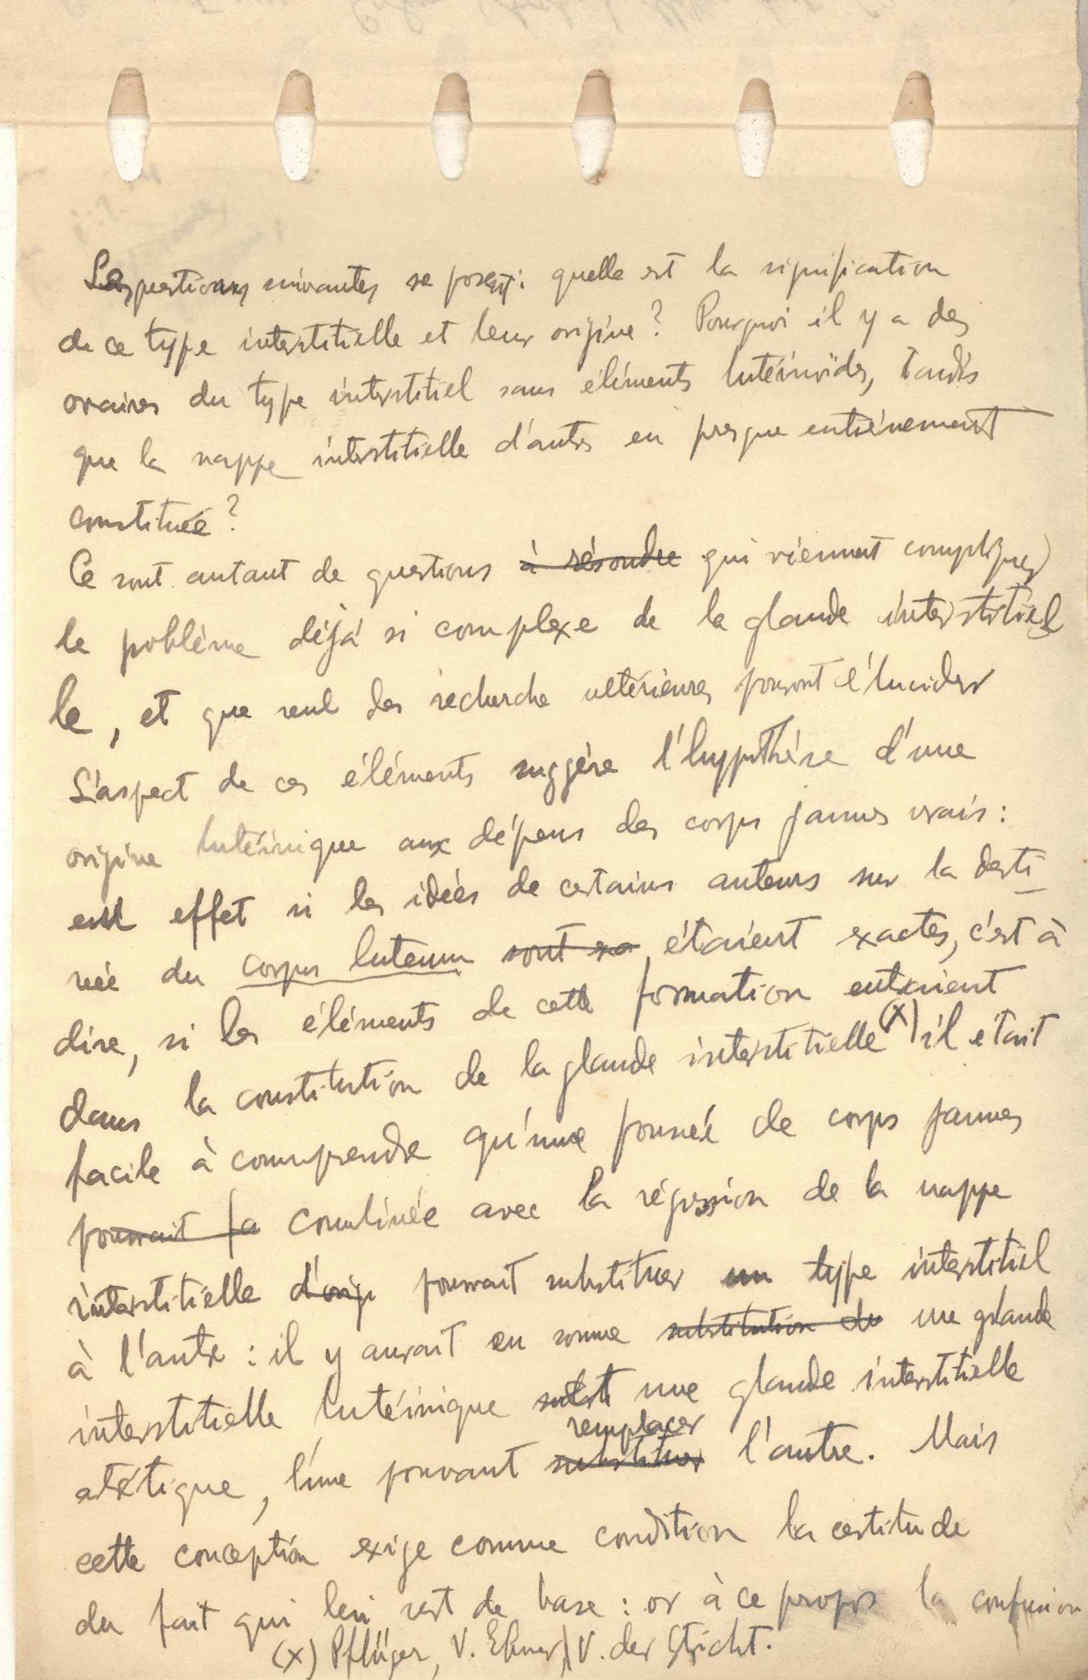 Les questions suivantes se posent: quelle est la signification
de ce type interstitielle et leur origine? Pourquoi il y a des
ovaires du type interstitiel sans éléments lutéinoïdes, tandis
que la nappe interstitielle d'autres en presque entièrement
constituée?
Ce sont autant de questions à résoudre qui viennent compliquer
le problème déjà si complexe de la glande interstitiel
le, et que seul des recherche ultérieures pouront élucider
L'aspect de ces éléments suggère l'hypothèse d'une
origine lutéinique aux dépens des corps jaunes vrais:
en effet si les idées de certains auteurs sur la desti
née du corpus luteum sont ex étaient exactes, c'est à
dire, si les éléments de cette formation entraient
dans la constitution de la glande interstitielle (x) il était
facile à comprendre qu'une poussée de corps jaunes
pourrait fa combinée avec la régression de la nappe
interstitielle d'orig pourrait substituer un type interstitiel
à l'autre: il y aurait en somme substitution de une glande
interstitielle lutéinique subst une glande interstitielle
remplacer
atrétique, l'une pouvant substituer l'autre. Mais
cette conception exige comme condition la certitude
du fait qui lui sert de base: or à ce propos la confusion
(x) Pflüger, V. Ebner, V. der Stricht.